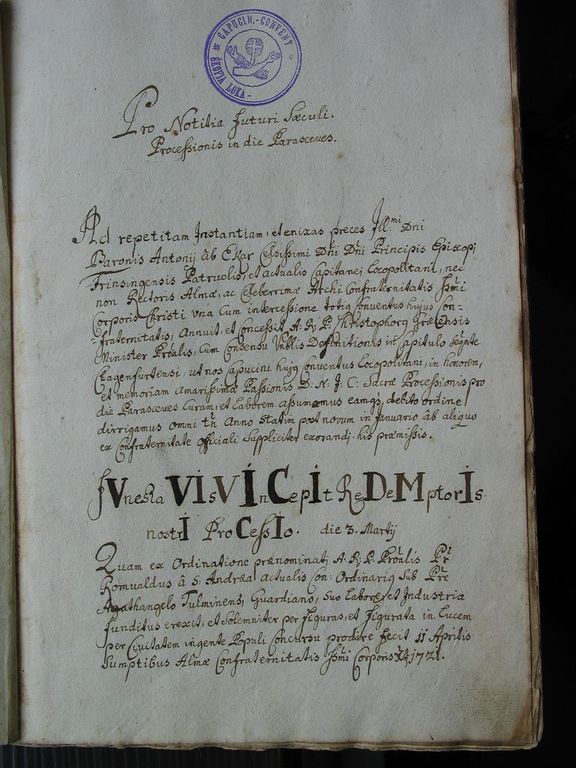 CAPUCIN.-CONVENT
SKOFIA LOKA
Pro Notitia futuri Sæculi.
Processionis in die Parasceves.
Ad repetitam Instantiam, et enixas preces Ill:mi Dni
Baronis Antonij ab Ekar Celsissimi Dni Dni Principis Episcopi
Frinsingensis Patruelis, et actualis Capitanei Locopolitani, nec
non Rectoris Almæ, ac Celeberrimæ Archi Confraternitatis SSmi
Corporis Christi una cum intercessione totig Conventus hujus Con-
-fraternitatis, Annuit, et concessit A. R. P. Christophorg Græcensis
Minister Prõalis, cum consensu Definitionis in Capitulo
Clagenfurtensi, ut nos Capucini hujg Conventus Locopolitani, in honorem,
et memoriam amarissimæ Passionis D. N. J. C. Sacræ Processionis pro
die Parasceves Curam, et laborem assumamus eamqg, debito ordine
dirrigamus omni tñ Anno statim post novum in Januario ab aliquo
ex Confraternitate Officiali Suppliciter exorandj. his præmissis.
fVnesta VI is VÍ InCepit ReDeMptorIs.
nostrI ProCessIo. die 3. Martij
Quam ex Ordinatione prænominatj A. R. P. Prõalis Pr
Romualdus â S. Andrea actualis Con: Ordinarig Sub Pre
Agathangelo Tulminensi, Guardiano, suo labore, et Industria
funditus erexit, et Solemniter per figuras, et figurata in lucem
per Civitatem ingente Populi concursu prodire fecit 11 Aprilis
Sumptibus Almæ Confraternitatis SSmi Corporis Xti 1721.